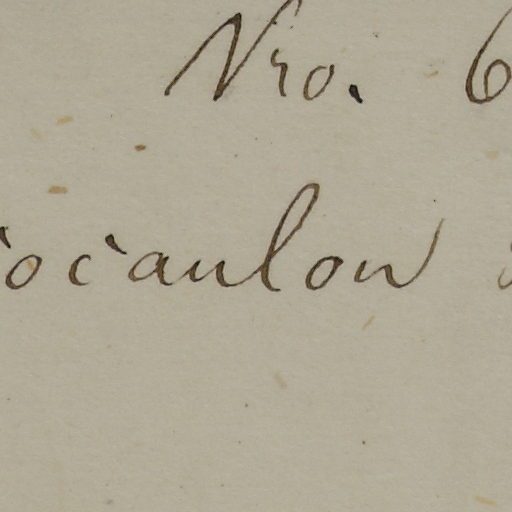 Nro. 6
ocaulon